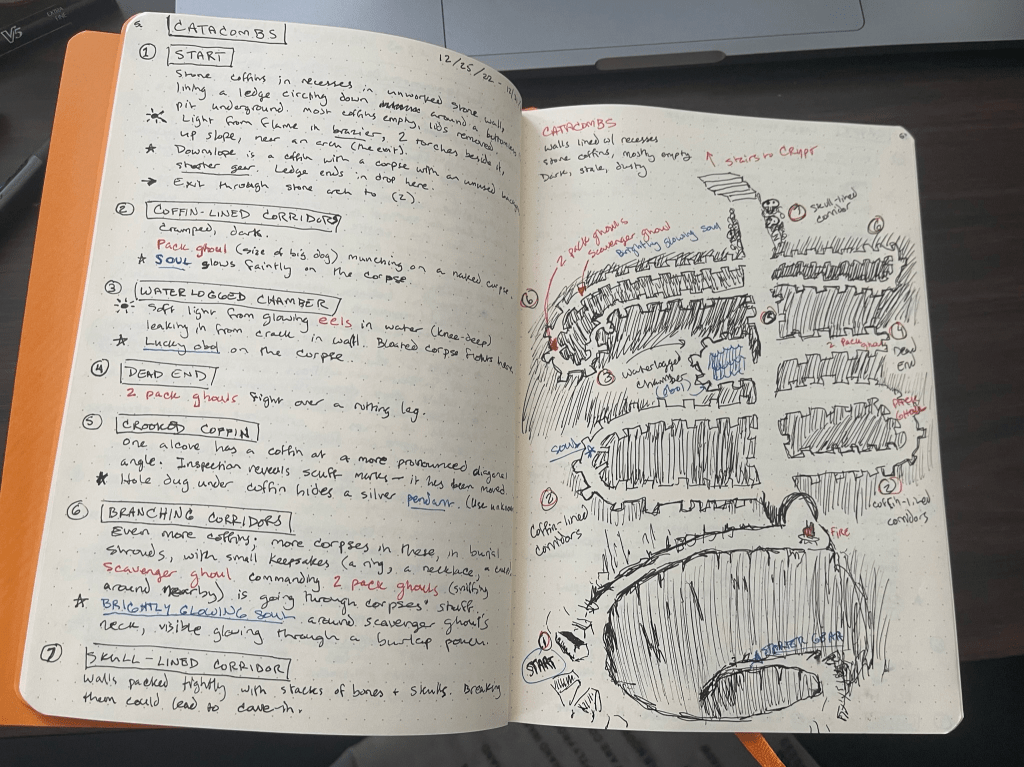 V5
EXTRA
FINE
CATACOMBS
12/25/22 -
① START
Stone coffins in recesses in unworked stone wall,
lining a ledge circling down around a bottomless
pit underground. most coffins empty, lids removed.
Light from flame in brazier, 2 torches beside it,
up slope, near an arch (the exit).
★ Downslope is a coffin with a corpse with an unused
starter gear. Ledge ends in drop here.
→ Exit through stone arch to (2).
② COFFIN-LINED CORRIDORS
Cramped, dark.
Pack ghoul (size of big dog) munching on a naked corpse.
★ SOUL glows faintly on the corpse.
③ WATERLOGGED CHAMBER
Soft light from glowing eels in water (knee-deep)
leaking in from crack in wall. Bloated corpse floats here.
★ Lucky obol on the corpse.
④ DEAD END
2 pack ghouls fight over a rotting leg.
⑤ CROOKED COFFIN
One alcove has a coffin at a more pronounced diagonal
angle. Inspection reveals scuff marks - it has been moved.
★ Hole dug under coffin hides a silver pendant. (Use unknown
⑥ BRANCHING CORRIDORS
Even more coffins; more corpses in these, in burial
shrouds, with small keepsakes (a ring, a necklace, a
Scavenger ghoul commanding 2 pack ghouls (sniffing
around nearby) is going through corpses' stuff.
★ BRIGHTLY GLOWING SOUL around scavenger ghoul's
neck, visible glowing through a burlap pouch.
⑦ SKULL-LINED CORRIDOR
Walls packed tightly with stacks of bones + skulls. Breaking
them could lead to cave-in.
CATACOMBS
Walls lined w/ recesses
stone coffins, mostly empty
Dark, stale, dusty
↑ stairs to CRYPT
⑦ Skull-lined
corridor
2 pack ghouls
scavenger ghoul
Brightly glowing soul
⑥
⑥
⑤
④
Dead
end
2 pack ghouls
③ Waterlogged
chamber
(obol)
pack
ghoul
SOUL
②
Coffin-lined
corridors
②
Coffin-lined
corridors
Fire
①
START
STARTER GEAR